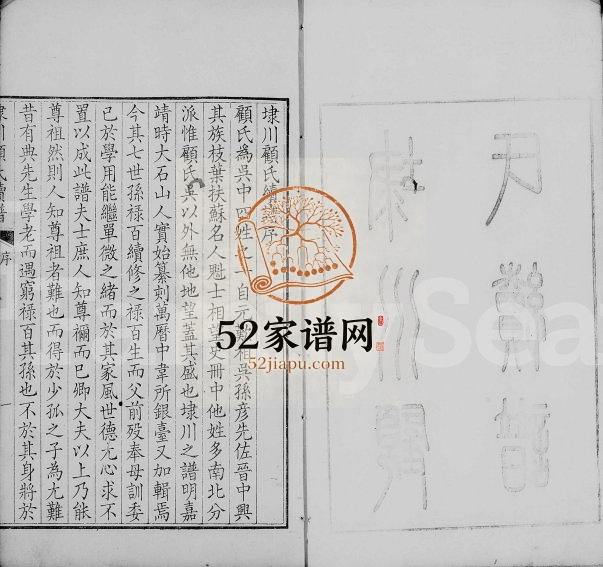 埭川顧氏續譜序
顧氏為吳中四姓之一自元歎祖吳孫彥先佐晉中興
其族枝葉扶蘇名人魁士相望史冊中他姓多南北分
派惟顧氏吳以外無他地望蓋其盛也埭川之譜明嘉
靖時大石山人實始纂刻萬曆中韋所銀臺又加輯焉
今其七世孫祿百續修之祿百生而父前歿奉母訓委
已於學用能繼單微之緒而於其家風世德尤心求不
置以成此譜夫士庶人知尊禰而已卿大夫以上乃能
尊祖然則人知尊祖者難也而得於少孤之子為尤難
昔有典先生學老而遇窮祿百其孫也不於其身將於
埭川顧氏續譜 序 一
52家谱网
52jiapu.com